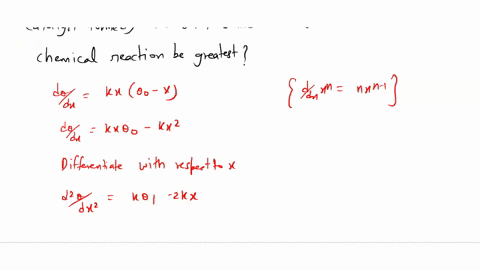 chemical reaction be greatest?
dθ/dx = kx (θ0 - x)
{ d/dn x^n = nx^n-1 }
dθ/dx = kxθ0 - kx²
Differentiate with respect to x
d²θ/dx² = kθ1 -2kx